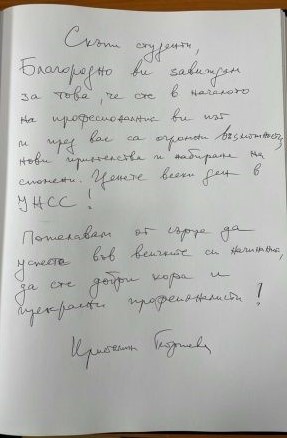 Скъпи студенти,
Благородно ви завиждам
за това, че сте в началото
на професионалния ви път
и пред вас са огромни възможности,
нови приятелства и набиране на
спомени. Ценете всеки ден в
УНСС!
Пожелавам от сърце да
успеете във всичките си начинания,
да сте добри хора и
прекрасни професионалисти!
Кристалина Георгиева